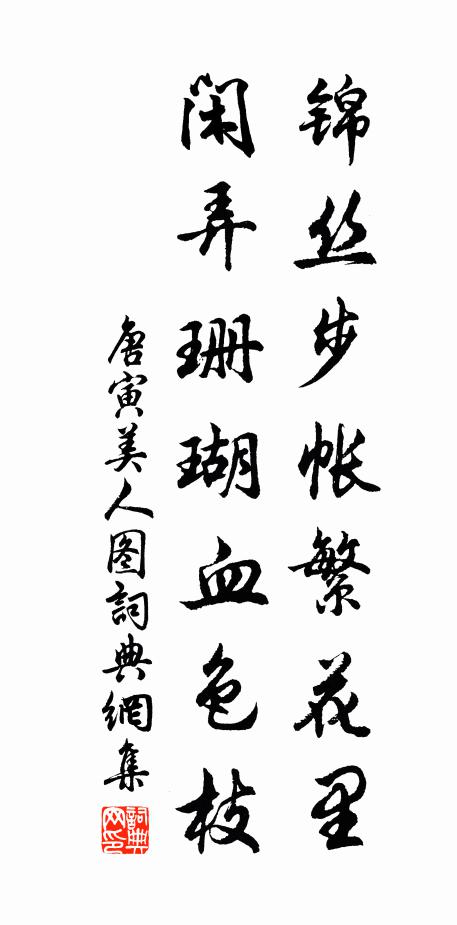 锦丝步帐繁花里
闲弄珊瑚血色枝
唐寅美人图詞典網集
詞典
网印